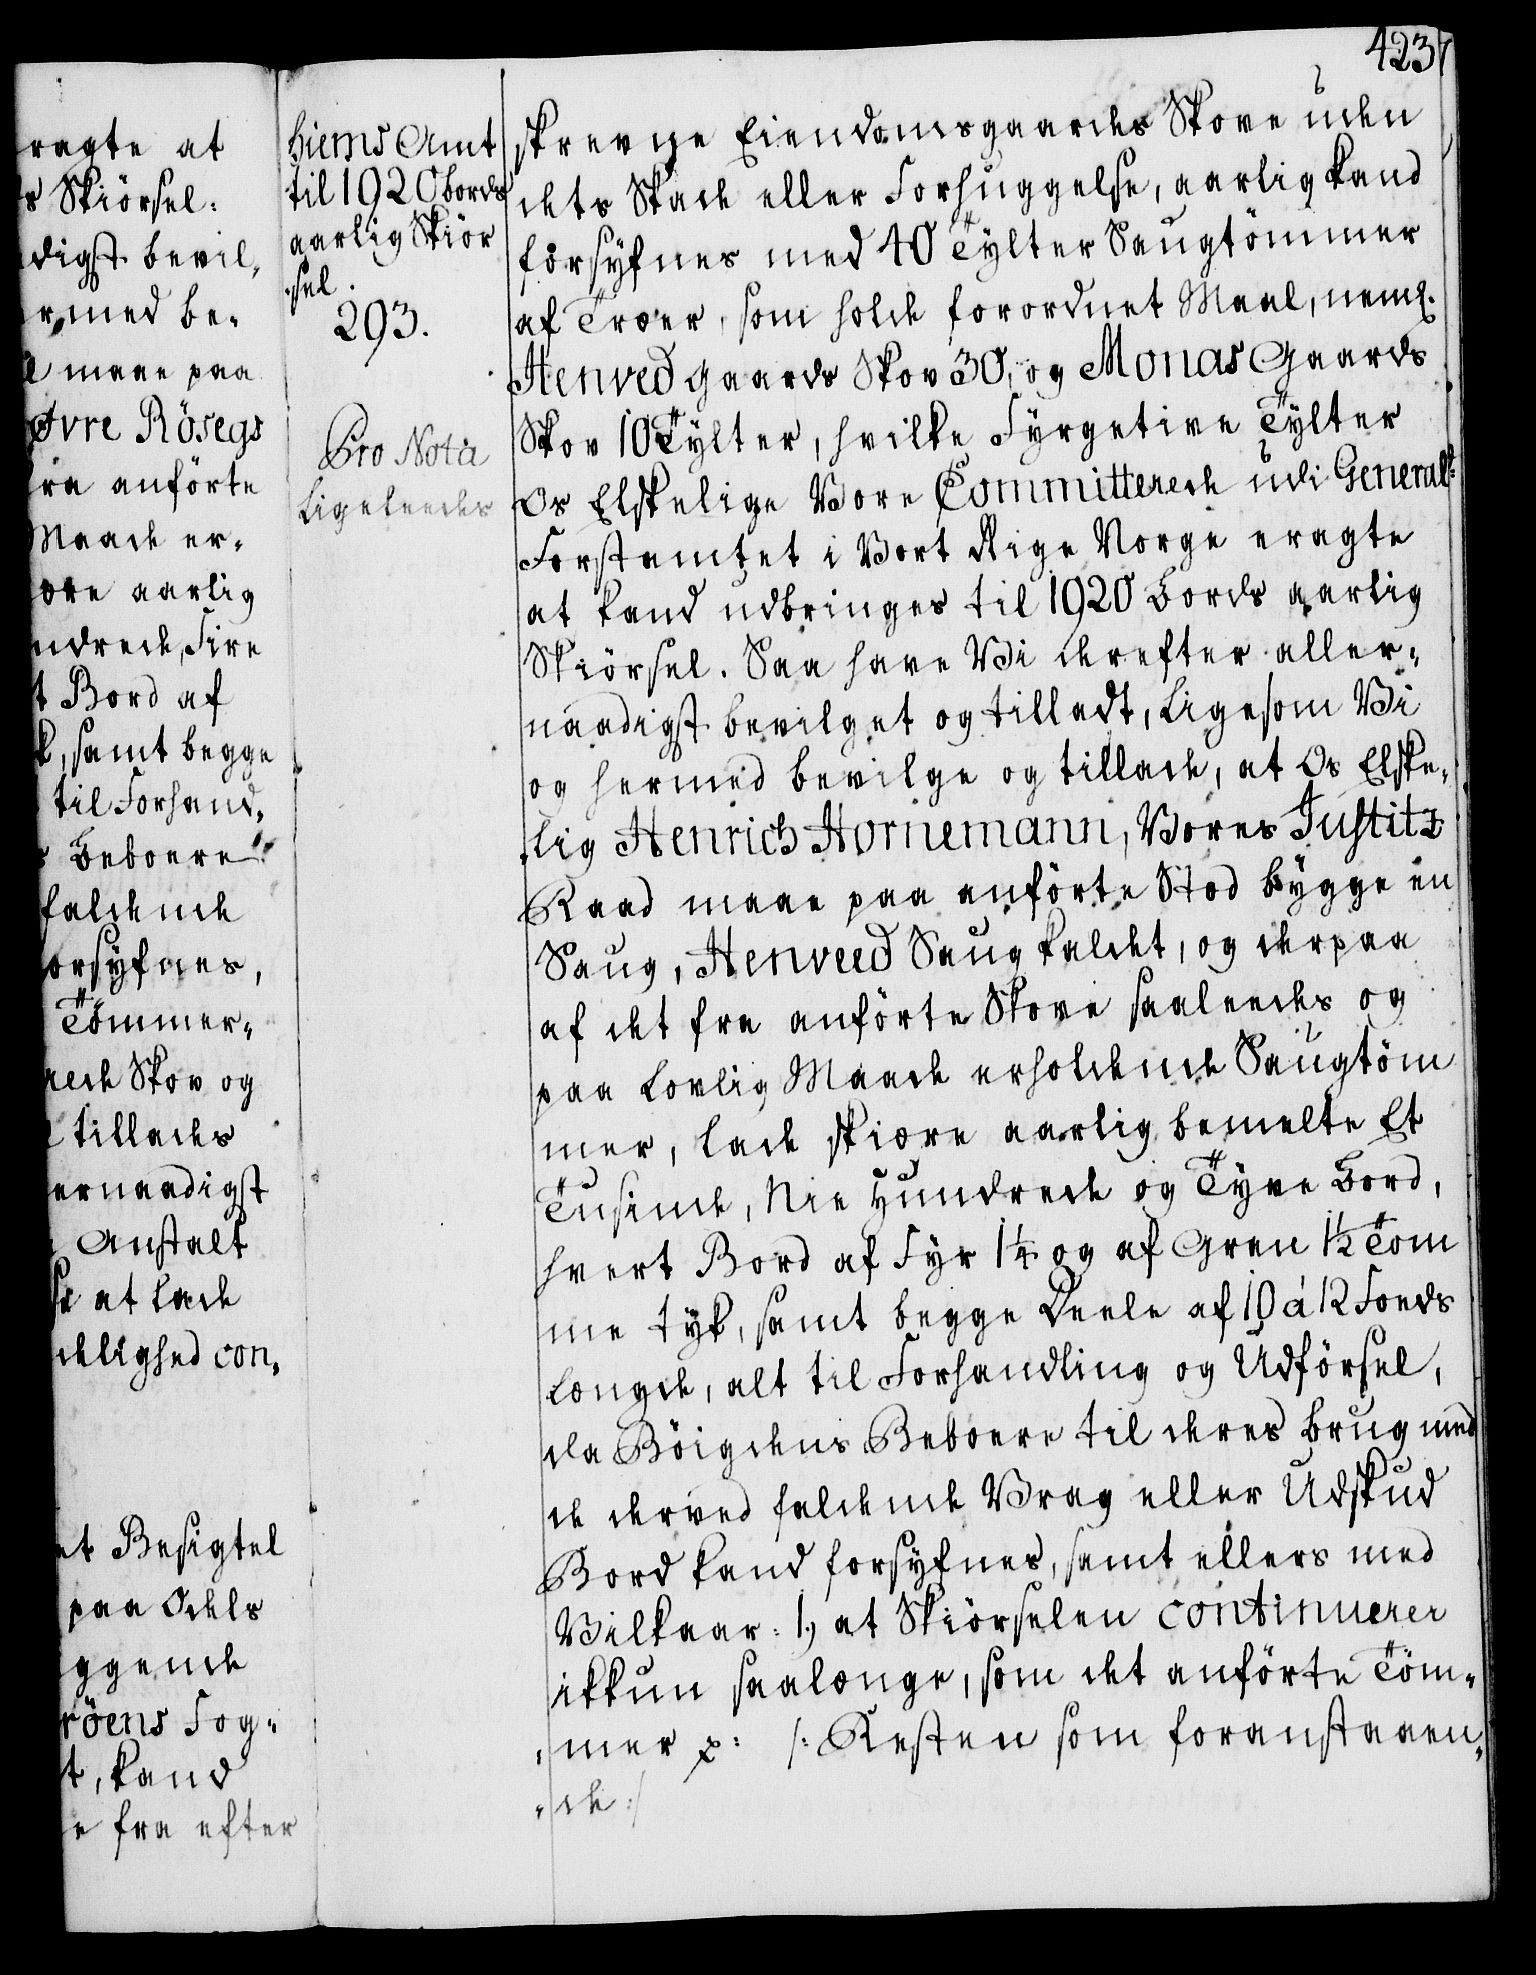 423
ragte at
s Skiörsel:
digst bevil,
r,med be-
maae paa
Øvre Rösegs
fra anförte
Maade er-
ore aarlig
ndrede, Fire
t Bord af
k, samt begge
til Forhand,
Beboere
faldende
orsyfnes,
Tömmer-
rede Skov og
tillades
ernaadigst
Anstalt
se at lade
delighed con,
et Besigtel
paa Odels
ggende
röens Fog-
t, kand
e fra efter
hiems Amt
til 1920 bords
aarlig Skiör
sel.
293.
Pro Nota
Ligeleedes
skrevne Eiendomsgaardes Skove uden
dets Skade eller Forhuggelse, aarlig kand
forsyfnes med 40 Tylter Saugtömmer
af Træer, som holde forordnet Maal, neml.
Henved gaards Skov 30, og Monas Gaards
Skov 10 Tylter, hvilke Fyrgetive Tylter
Os Elskelige Vore Committerede udi General-
Forstamtet i Vort Rige Norge eragte
at kand udbringes til 1920 Bords aarlig
Skiörsel. Saa have Vi derefter aller-
naadigst bevilget og tilladt, Ligesom Vi
og hermed bevilge og tillade, at Os Elske-
lig Henrich Hornemann, Vores Justitz
Raad maae paa anförte Stød bygge en
Saug, Henveed Saug kaldet, og derpaa
af det fra anförte Skove saaleedes og
paa Lovlig Maade erholdende Saugtöm
mer, lade skiære aarlig bemelte Et
Tusinde, Nie Hundrede og Tyve Bord,
hvert Bord af Fyr 1¼ og af Gran 1½ Tom
me tyk, samt begge Deele af 10 á 12 Foeds
Længde, alt til Forhandling og Udförsel,
da Böigdens Beboere til deres brug med
de derved faldende Vrag eller Udskud
Bord kand forsyfnes, samt ellers med
Vilkaar: 1.) at Skiörselen continuerer
ikkun saalænge, som det anförte Töm-
mer p: /: Resten som foranstaaen-
de :/